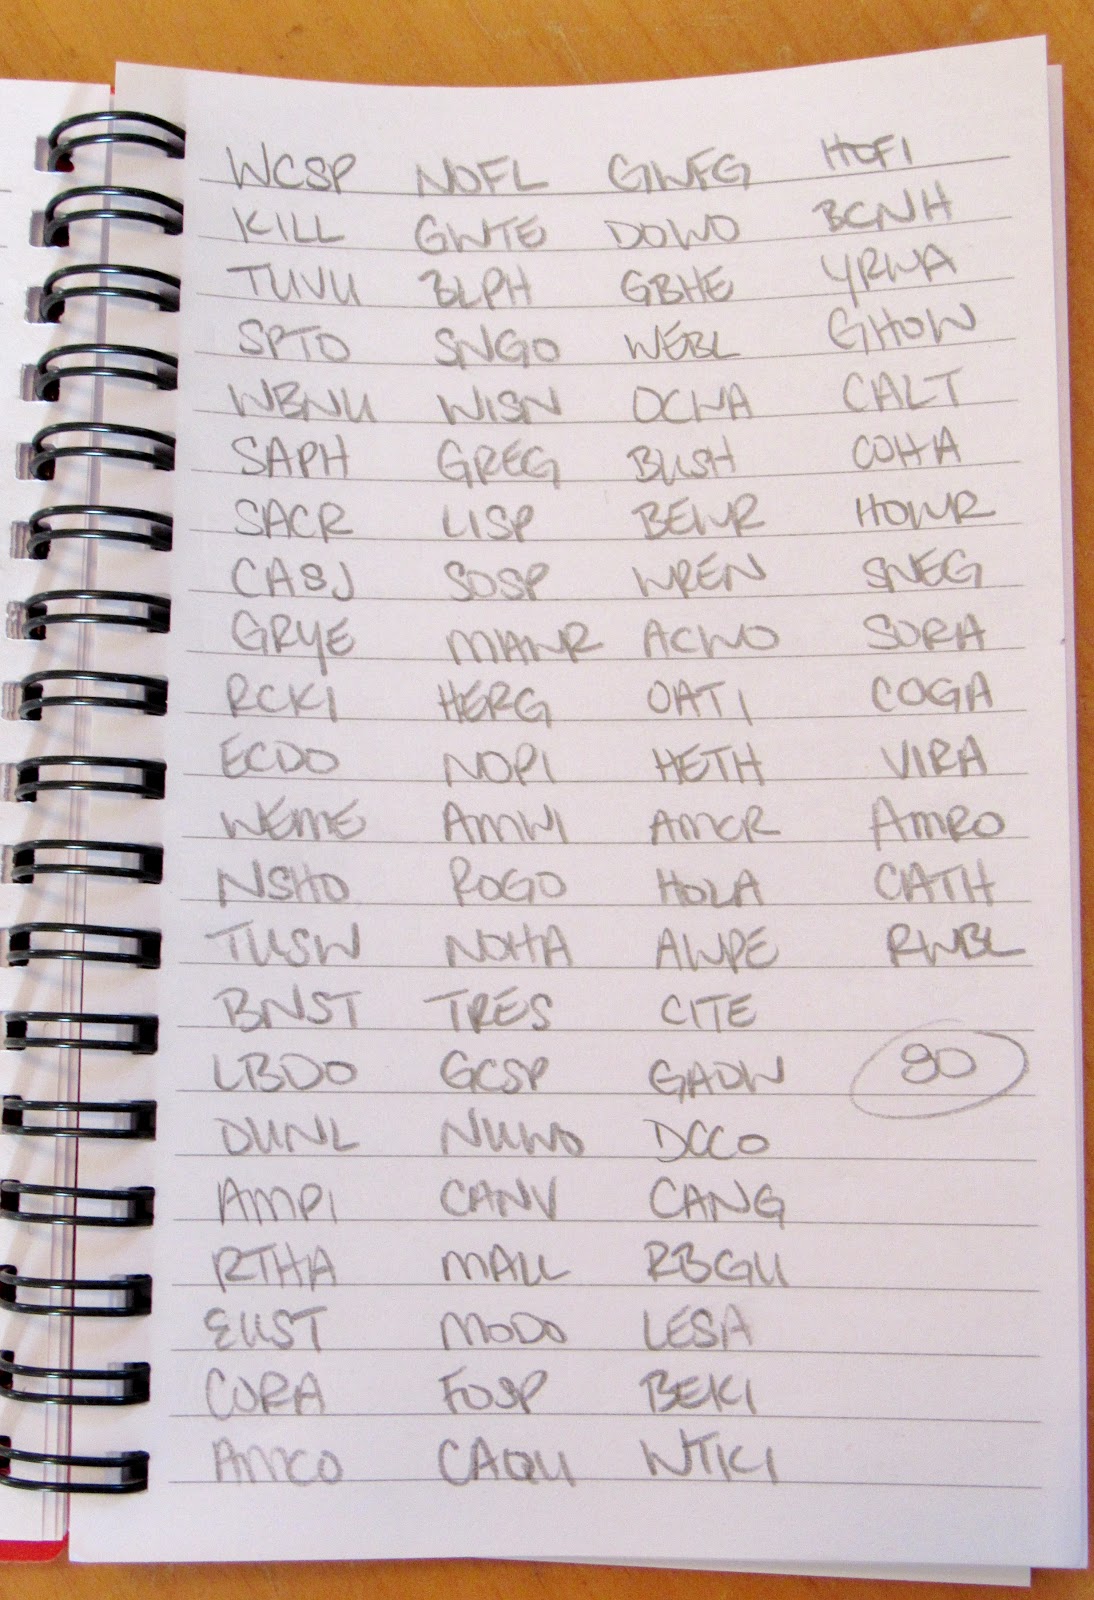 WCSP NOFL GWFG HOFI
KILL GWTE DOWO BCNH
TUVU BLPH GBHE YRWA
SPTO SNGO WEBL GHOW
WBNU WISN OCWA CALT
SAPH GREG BUSH COHA
SACR LISP BEWR HOWR
CASJ SOSP WREN SNEG
GRYE MAWR ACWO SORA
RCKI HERG OATI COGA
ECDO NOPI HETH VIRA
WEME AMWI AMCR AMRO
NSHO ROGO HOLA CATH
TUSW NOHA AWPE RWBL
BNST TRES CITE
LBDO GCSP GADW 80
DUNL NUWO DCCO
AMPI CANV CANG
RTHA MALL RBGU
EUST MODO LESA
CORA FOSP BEKI
AMCO CAQU WTKI